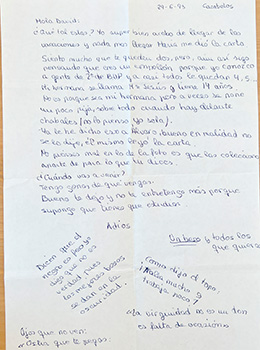 29-6-93 Cacabelos
Hola David:
¿Qué tal estas? Yo super bien acabo de llegar de las
vacaciones y nada mas llegar Maus me dió la carta
Siento mucho que te queden dos, pero, aun asi sigo
pensando que eres un empollón porque yo conozco
a gente de 2º de BUP y a casi todos le quedan 4, 5...
Mi hermana se llama Mª Jesús y tiene 14 años
No es porque sea mi hermana pero a veces se pone
un poco pija, sobre todo cuando hay delante
chabales (no lo pienso yo sola).
Ya le he dicho eso a Alvaro, bueno en realidad no
se lo dije, él mismo leyó la carta.
No pienses mal es lo de la foto es que las colecciono
aparte de para lo que tu dices.
¿Cuándo vas a venir?
Tengo ganas de que vengas.
Bueno te dejo y no te entretengo más porque
supongo que tienes que estudiar.
Adios
Un beso y todos los
que quieras
Dicen que el
negro es
digo que no es
verdad pues
los mejores besos
se dan en la
oscuridad.
Como dijo el Papa:
¡Folla mucho y
trabaja poco!
-La virginidad no es un don
es falta de ocasión
Ojos que no ven:
-Ostia que te pegas.